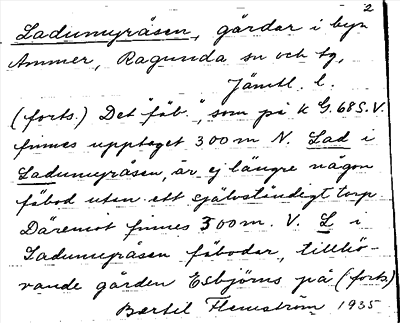 2
Ladumyråsen, gårdar i byn
Ammer, Ragunda sn och tg,
Jämtl. l.
(forts.) Det "fäb.", som på k G. 68 S.V.
finnes upptaget 300 m N. Lad i
Ladumyråsen, är ej längre någon
fäbod utan ett självständigt torp.
Däremot finnes 500 m. V. L i
Ladumyråsen fäbodar, tillhö-
rande gården Esbjörns på (forts)
Bertil Flemström 1935